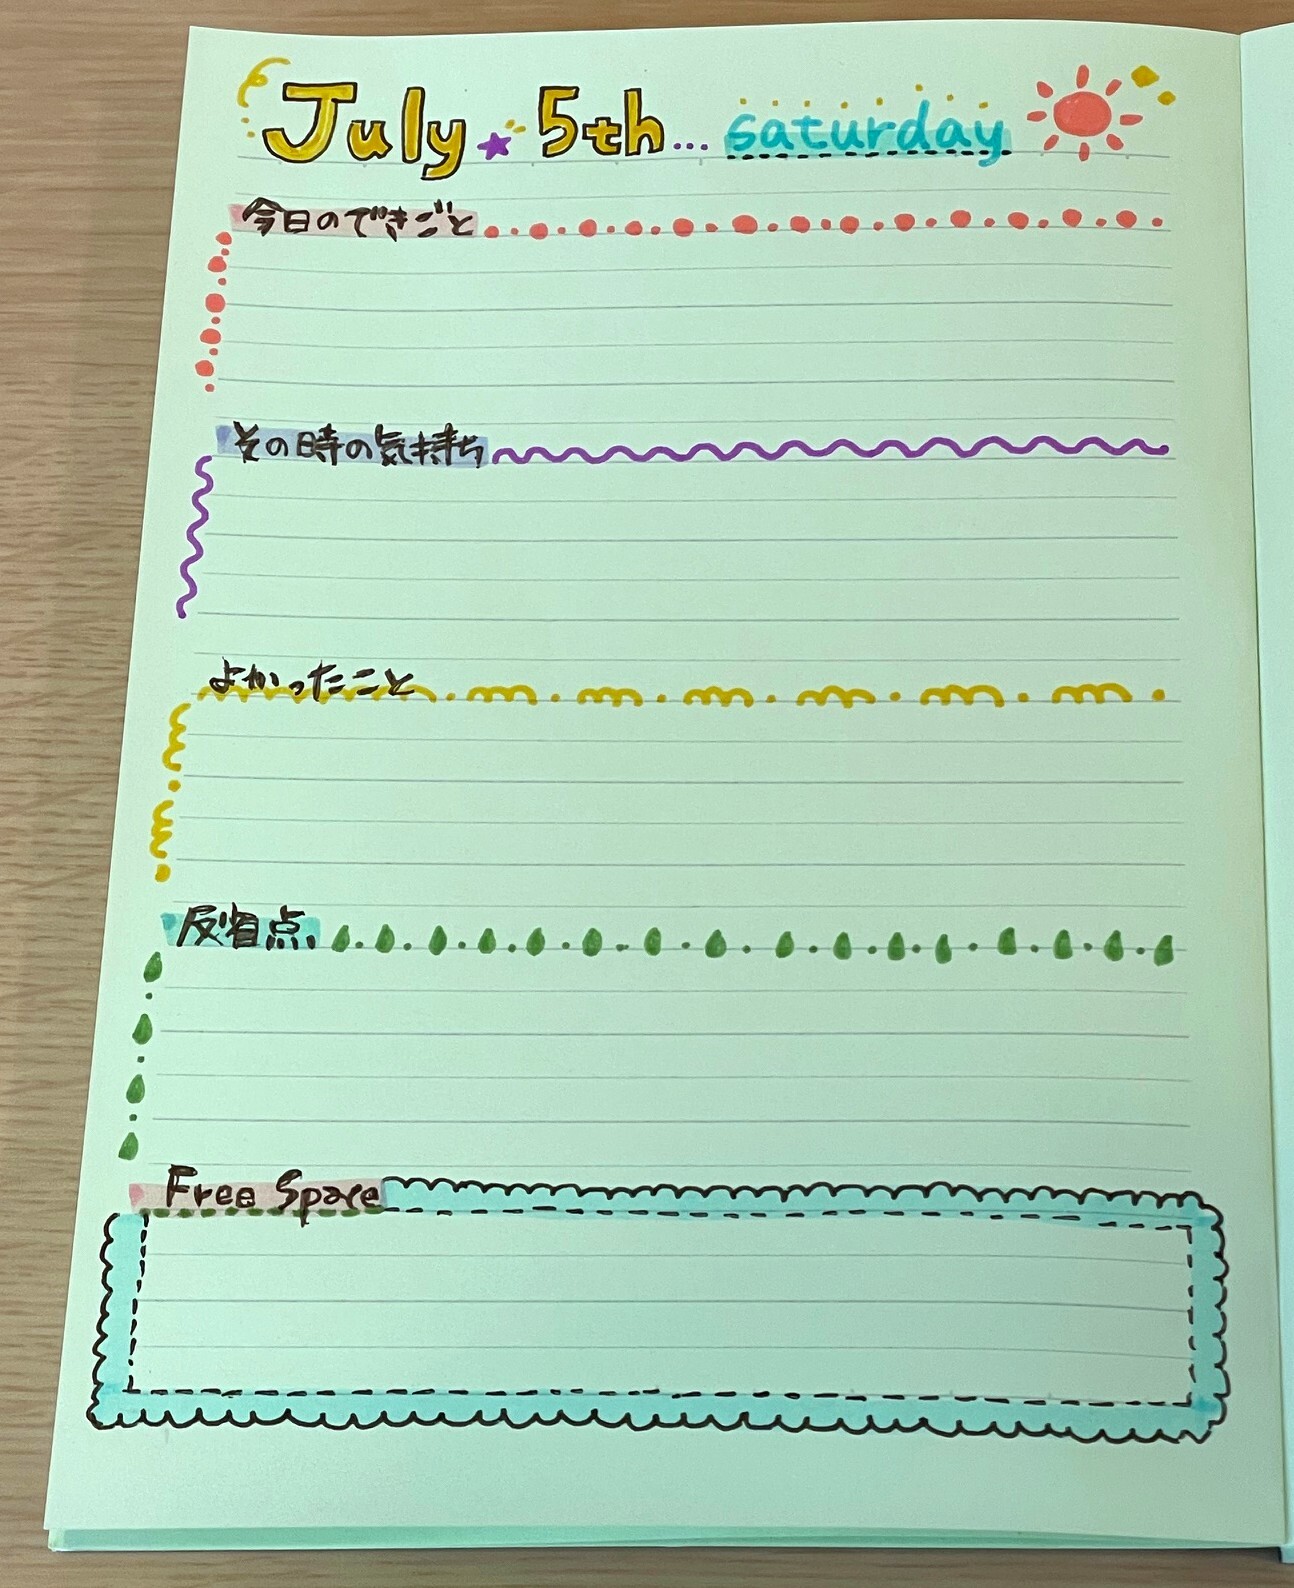 July 5th... saturday
今日のできごと
その時の気持ち
よかったこと
反省点
Free Space